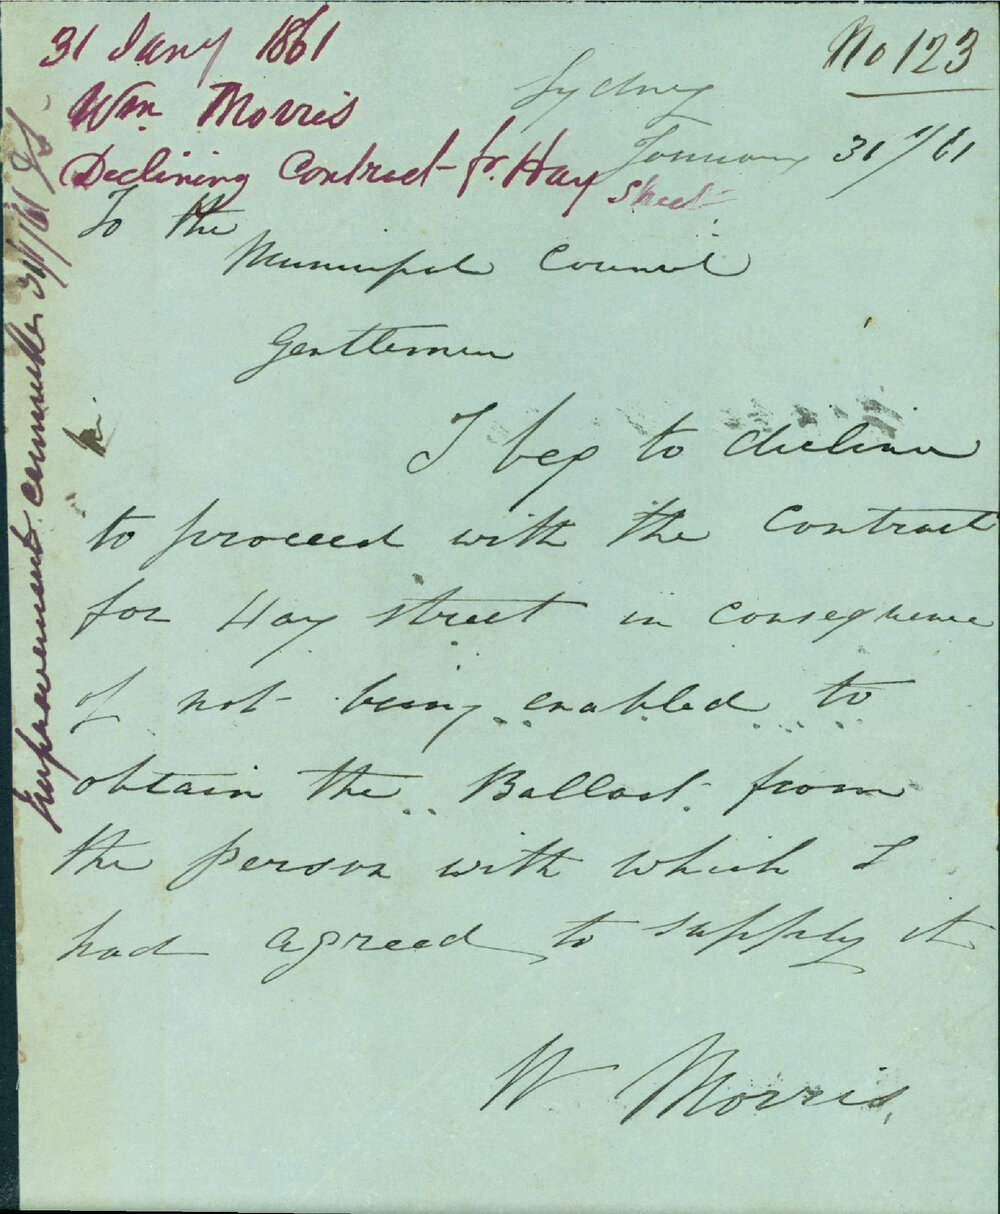 No 123
31 Jany 1861
Wm. Morris
Declining Contract fr. Hay Street
Sydney
January 31 1/61
To the
Municipal Council
Gentlemen
I beg to decline
to proceed with the Contract
for Hay Street in consequence
of not being enabled to
obtain the Ballast from
the person with which I
had agreed to supply it
W Morris
Improvement Committee